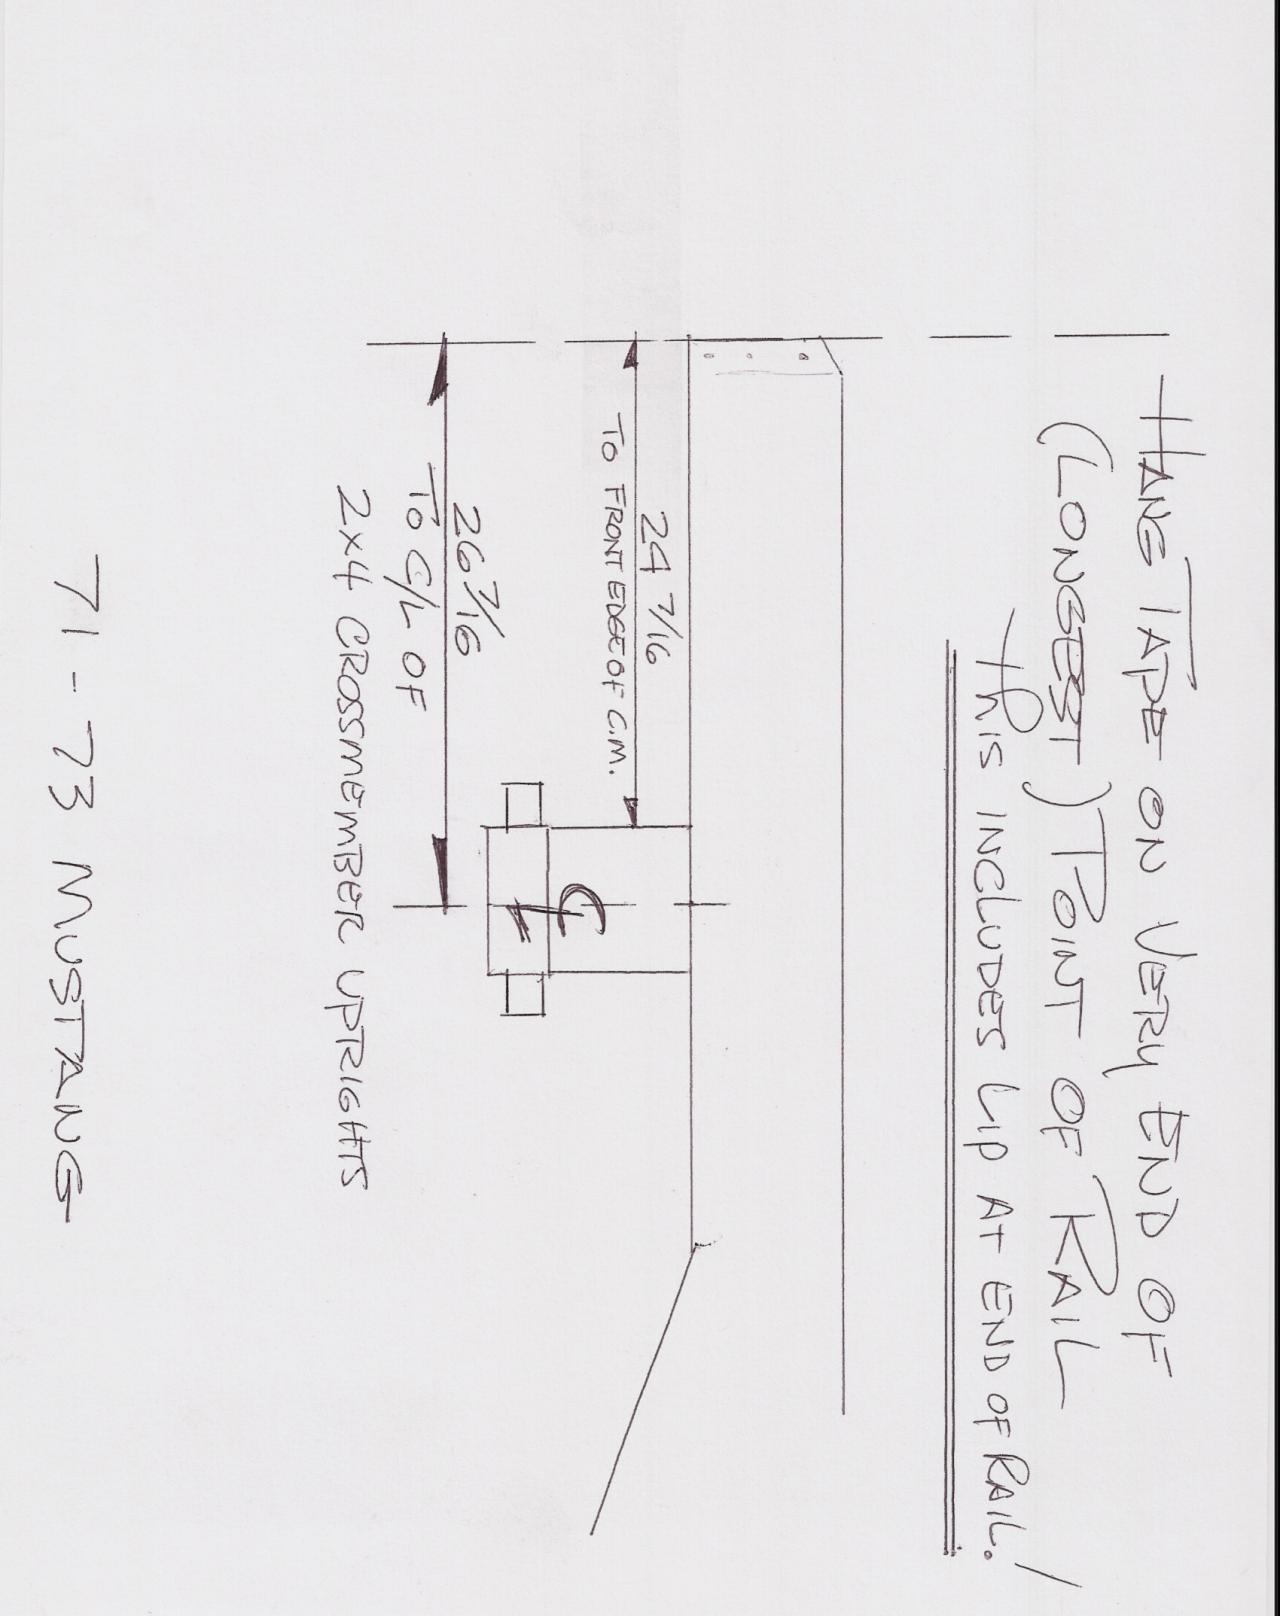 HANG TAPE ON VERY END OF
(LONGEST) POINT OF RAIL
This INCLUDES LIP AT END OF RAIL!
24 7/16
TO FRONT EDGE OF C.M.
26 7/16
TO C/L OF
2x4 CROSSMEMBER UPRIGHTS
71-73 MUSTANG